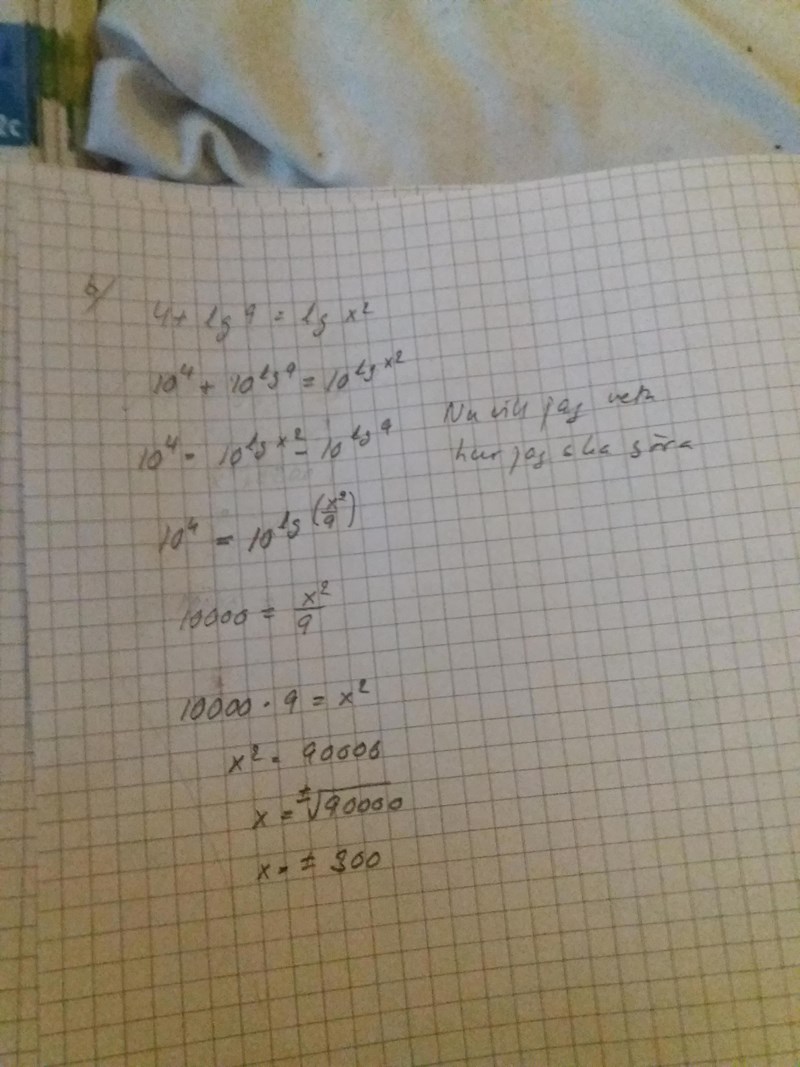 2c
b/
4 + lg 9 = lg x²
10⁴ + 10^lg 9 = 10^lg x²
10⁴ = 10^lg x² - 10^lg 9
Nu vill jag veta
hur jag ska göra
10⁴ = 10^lg (x²/9)
10000 = x²/9
10000 · 9 = x²
x² = 90000
x = ±√90000
x = ± 300